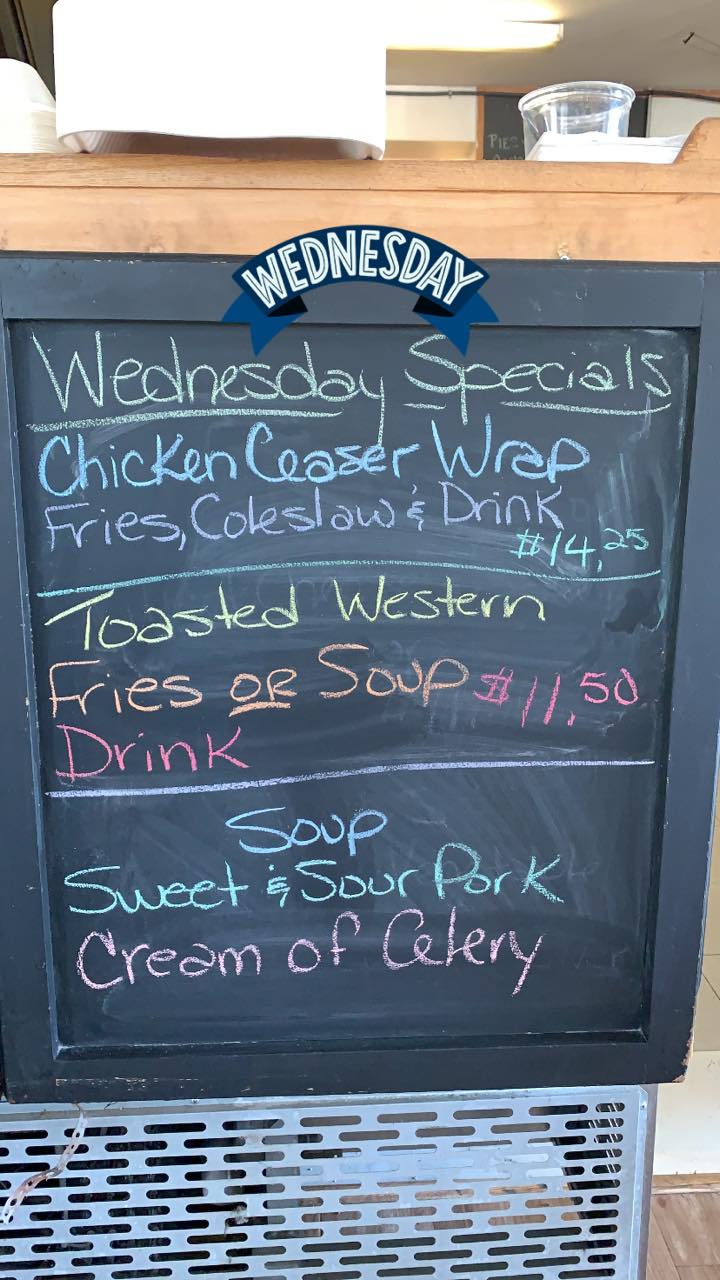 PIES
WEDNESDAY
Wednesday Specials
Chicken Ceaser Wrap
Fries, Coleslaw & Drink
$14.25
Toasted Western
Fries OR Soup $11.50
Drink
Soup
Sweet & Sour Pork
Cream of Celery